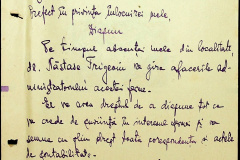 Prefect în privința înlocuirei mele,
Dispun
Pe timpul absenței mele din localitate,
dl. Năstase Frigariu va gira afacerile ad-
ministratorului acestei
El va avea dreptul de a dispune tot ce
va crede de cuviință în interesul și va
semna cu plin drept toată corespondența și actele
de contabilitate.